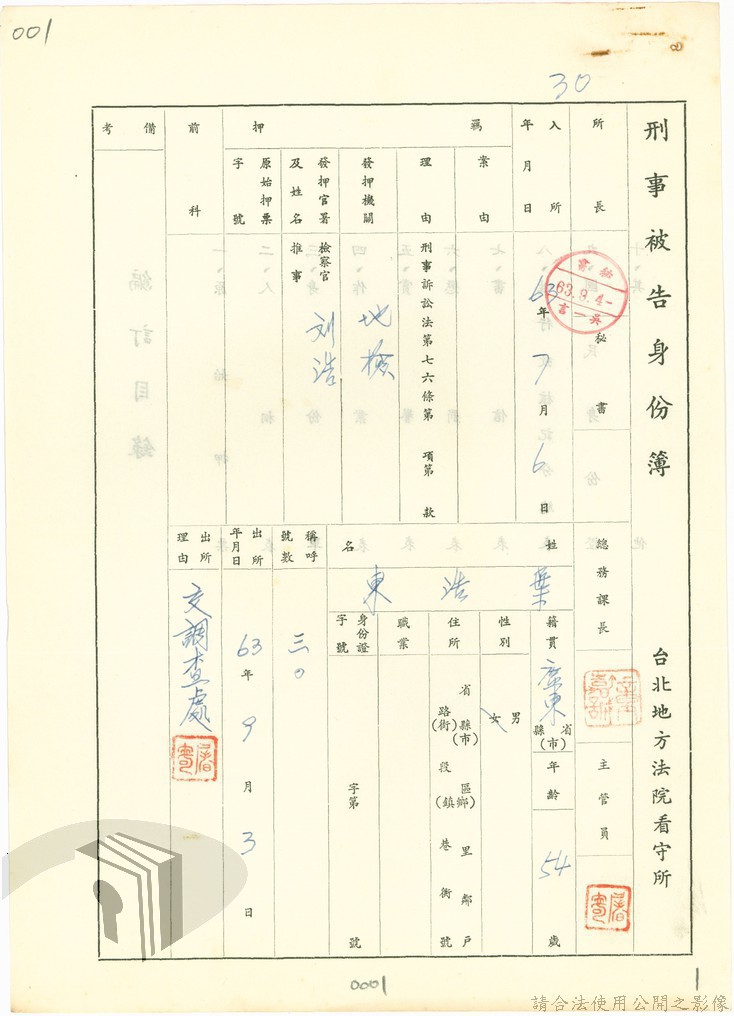 001
30
刑事被告身份簿
台北地方法院看守所
所長
秘書
總務課長
主管員
63.9.4-
入所年月日
63年7月6日
姓名
葉浩東
籍貫
廣東
省縣(市)
年齡
54歲
性別
男女
住所
省縣(市)區鄉(鎮)里鄰戶
路(街)段巷衖號
職業
身份證字號
字第號
羈押
案由
理由
刑事訴訟法第七六條第項第款
發押機關
地檢
發押官署及姓名
檢察官
推事
刘浩
原始押票字號
稱呼號數
三〇
出所年月日
63年9月3日
前科
出所理由
交調查處
備考
編訂目錄
0001
請合法使用公開之影像